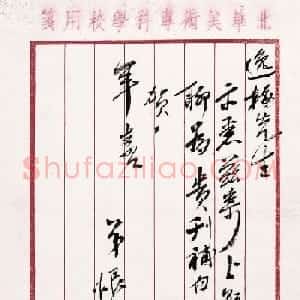 北華美術專科學校用箋
逸梅先生
示悉茲寄上
聊為貴刊補白
頌
筆喜
弟悵
Shufaziliao.COM